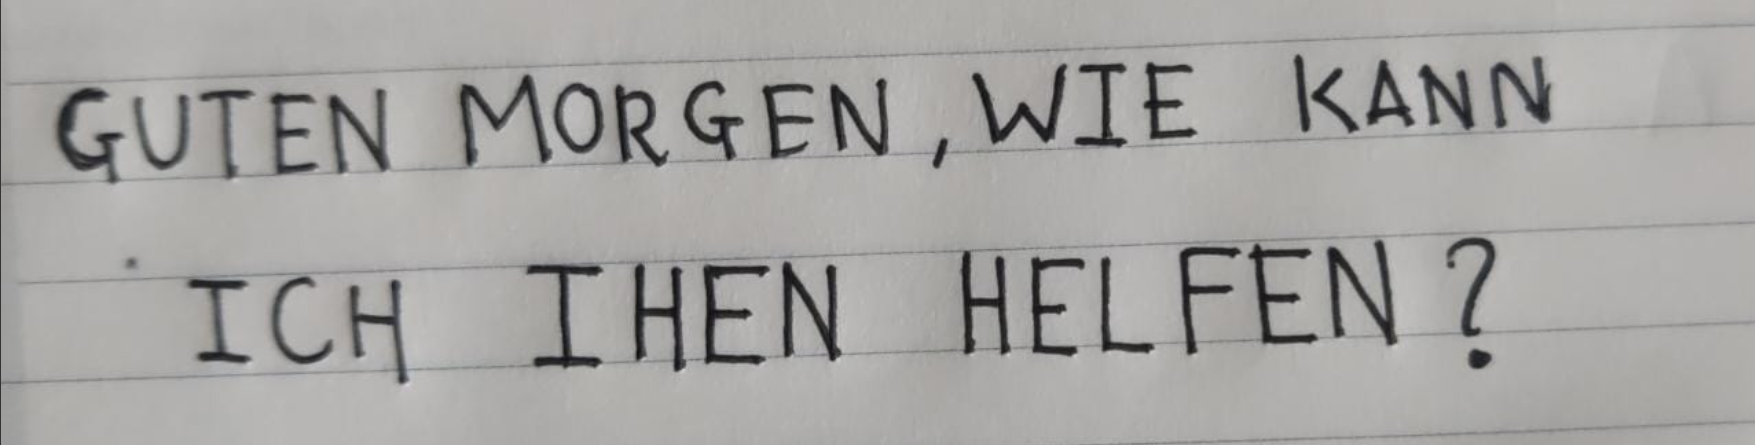 GUTEN MORGEN, WIE KANN
ICH IHEN HELFEN?